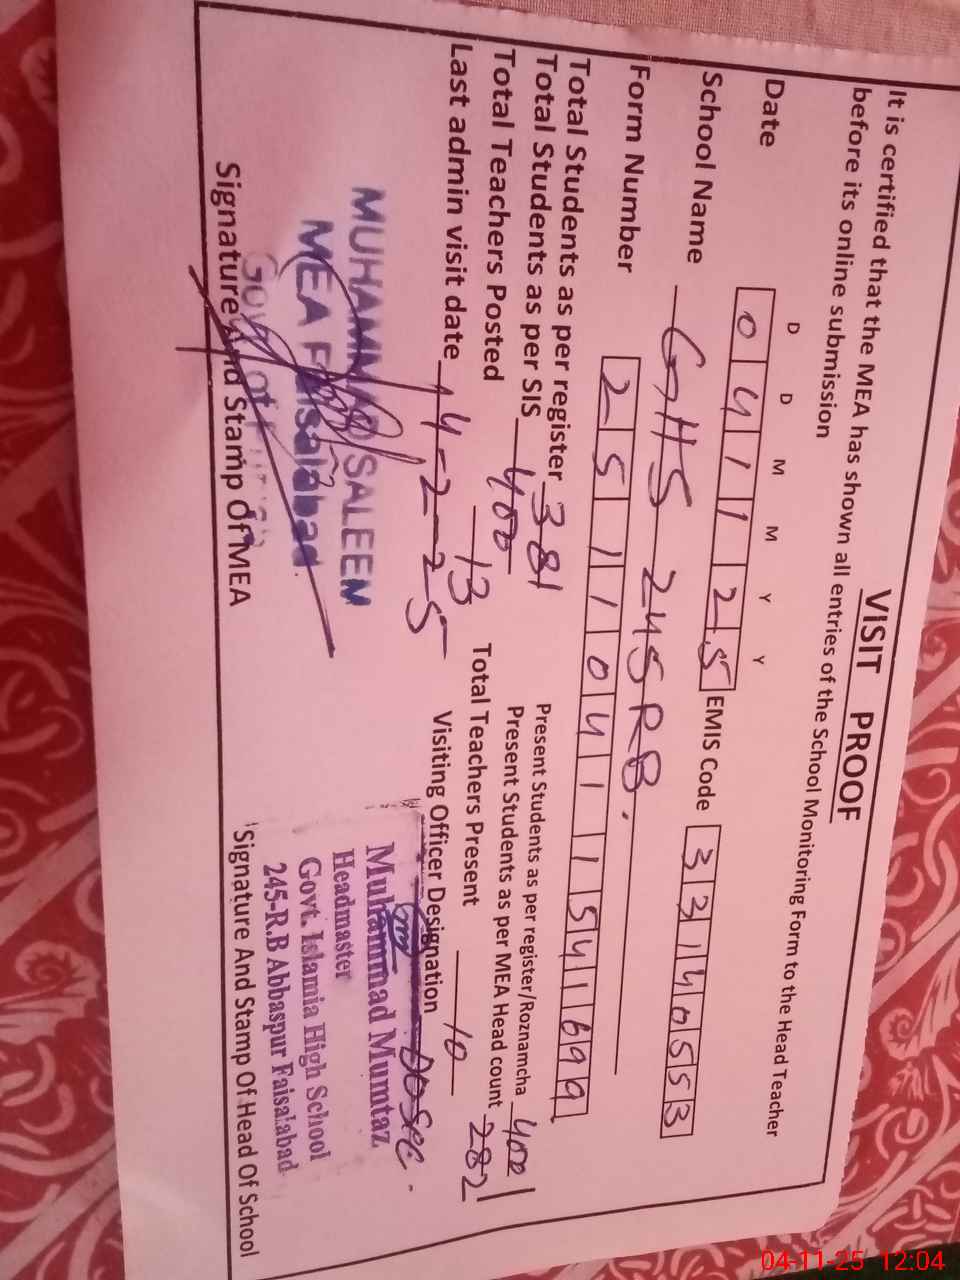 VISIT PROOF
It is certified that the MEA has shown all entries of the School Monitoring Form to the Head Teacher
before its online submission
D D M M Y Y
Date 0 4 1 1 2 5 EMIS Code 3 3 1 4 0 5 5 3
School Name GHS 245 RB.
Form Number 2 5 1 1 0 4 1 1 5 4 1 6 9 9
Total Students as per register 381 Present Students as per register/Roznamcha 400
Total Students as per SIS 400 Present Students as per MEA Head count 282
Total Teachers Posted 13 Total Teachers Present 10
Last admin visit date 14-2-25 Visiting Officer Designation
MUHAMMAD SALEEM
MEA Faisalabad
Govt of
Signature And Stamp Of MEA
Muhammad Mumtaz
Headmaster
Govt. Islamia High School
245-R.B Abbaspur Faisalabad
Signature And Stamp Of Head Of School
04-11-25 12:04